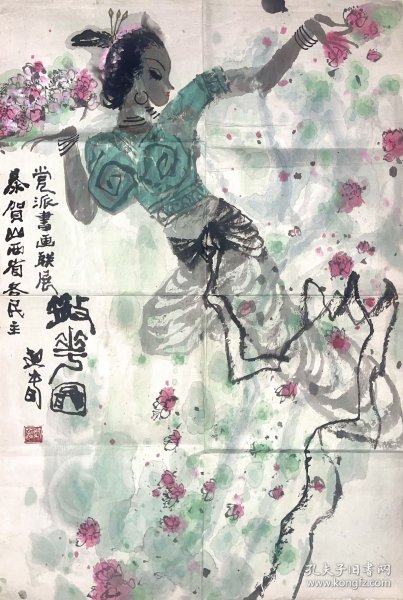 恭賀山西省各民主
党派書画联展
散花图
孔夫子旧书网
www.kongfz.com